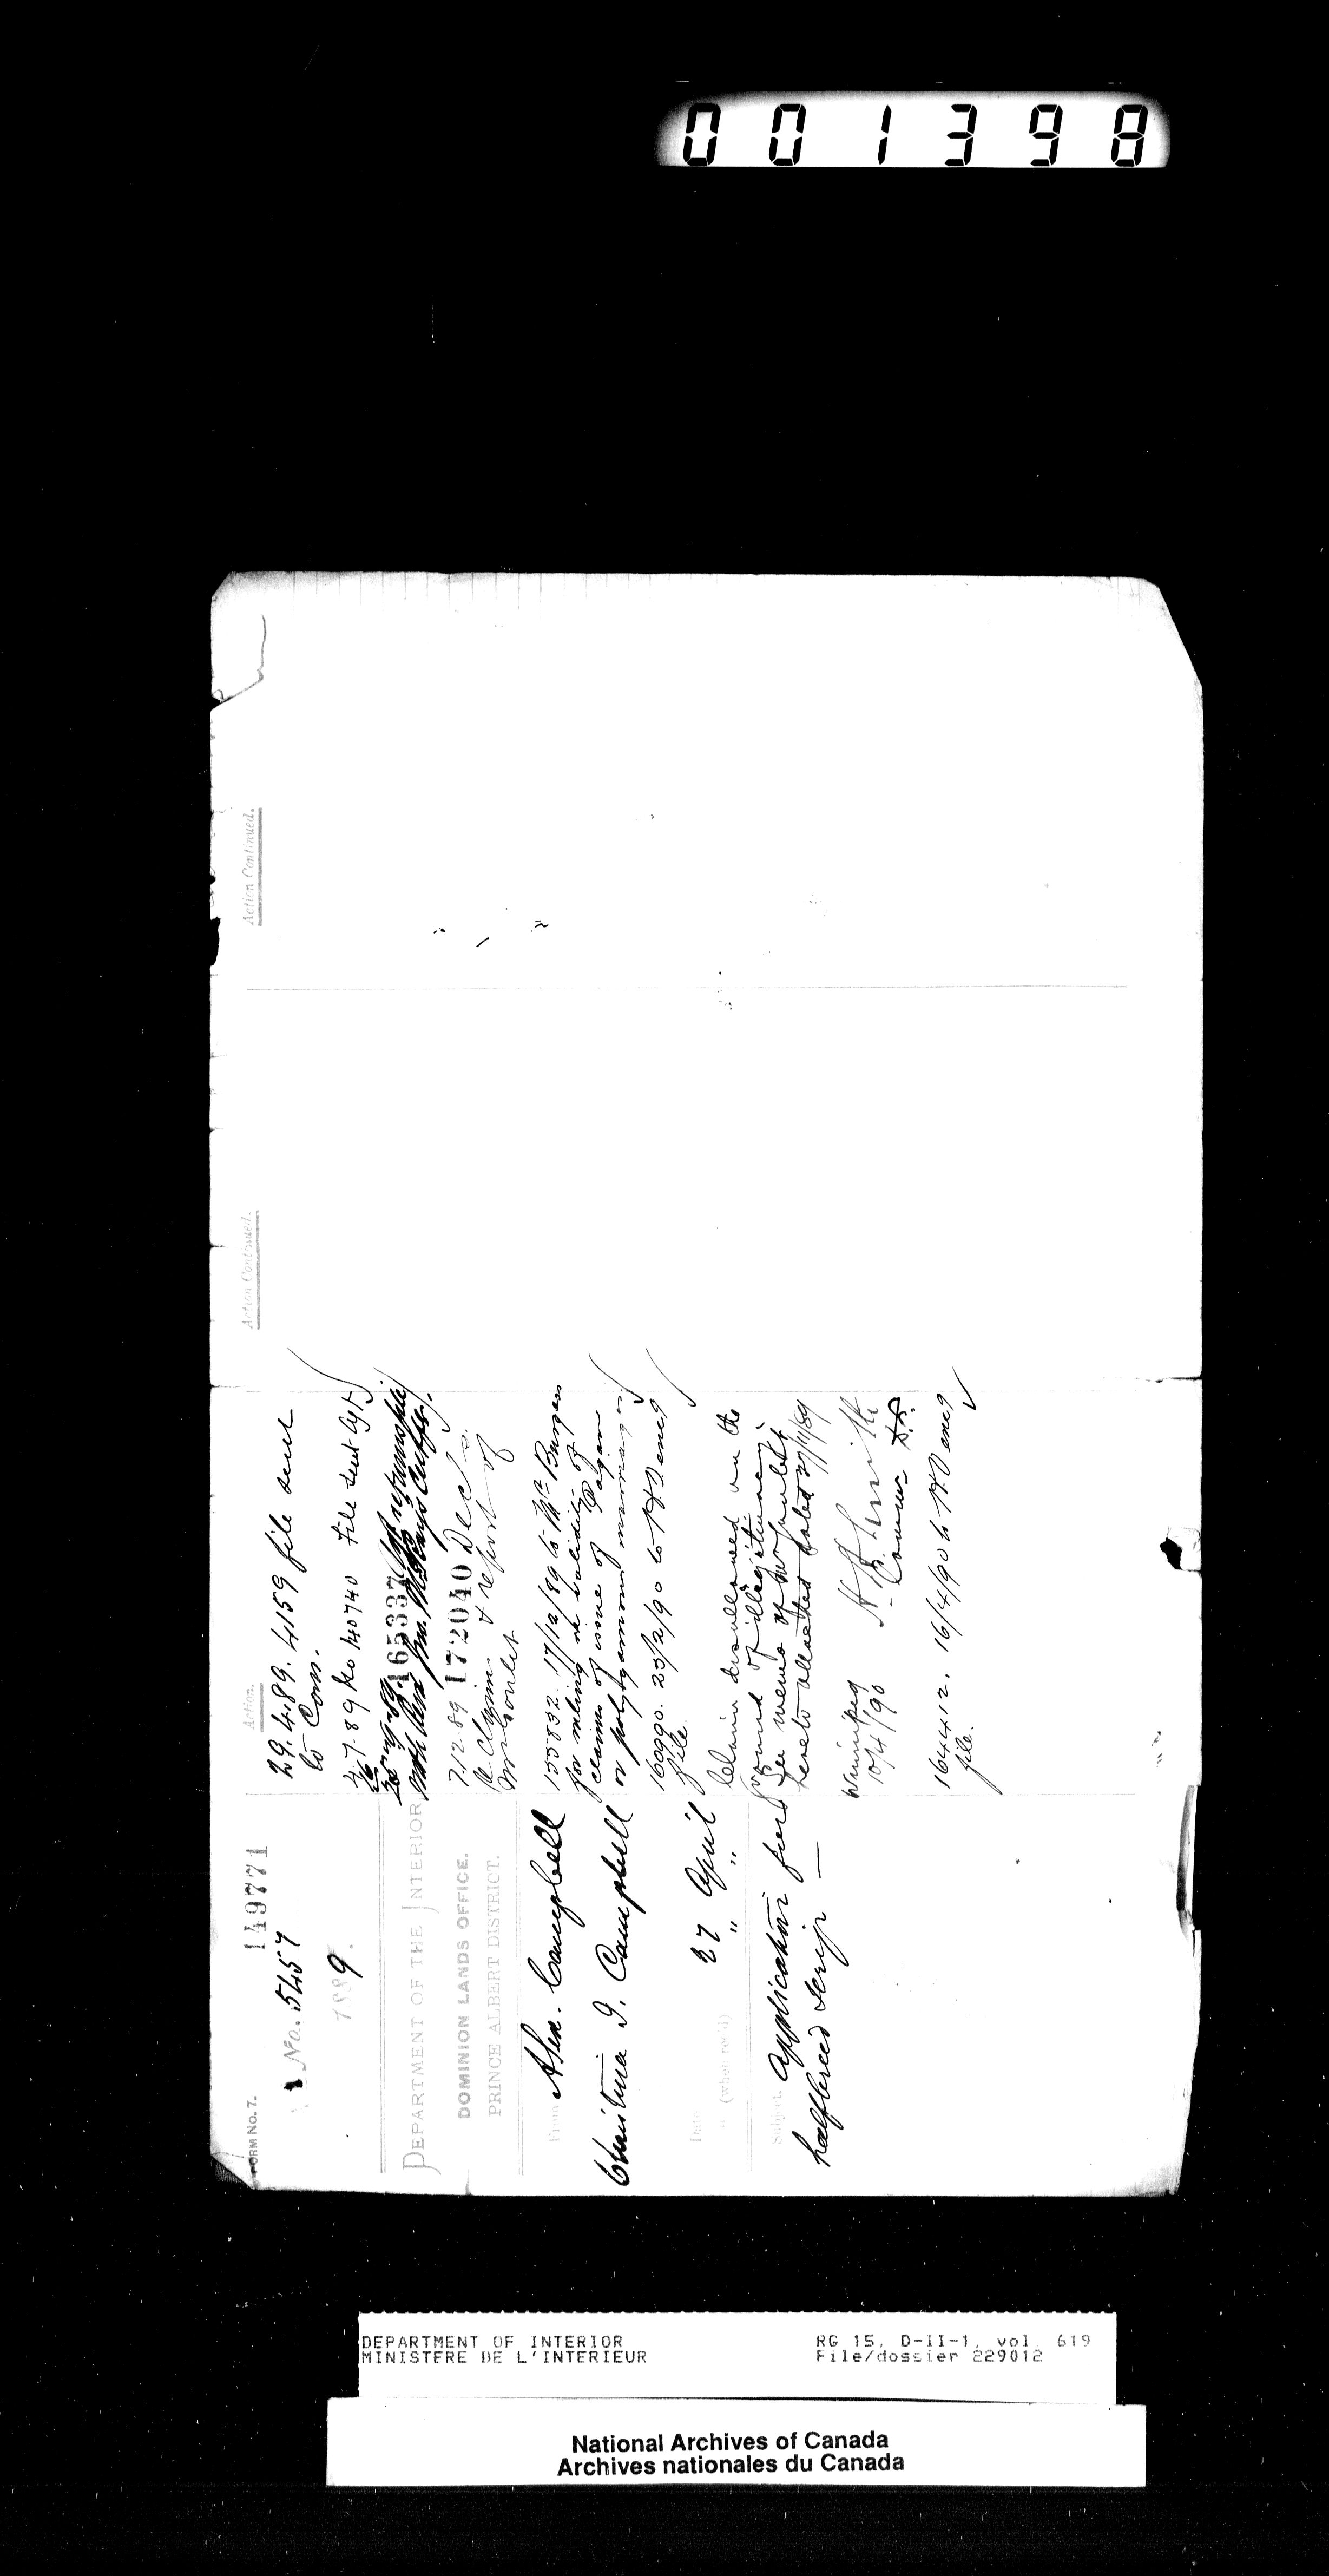 001398
FORM No. 7.
149771
No. 5457
1889.
DEPARTMENT OF THE INTERIOR
DOMINION LANDS OFFICE.
PRINCE ALBERT DISTRICT.
From Alex. Campbell
Christina I. Campbell
Date 27 April
" (when rec'd) " "
Subject. Application for
halfbreed scrip —
Action.
29.4.89. 4159 file sent
to Com.
4.7.89 140740 File sent
165337
7.12.89 172040 Decs.
& report of
155832 17/12/89 to Mr Burgess
for ruling re validity of
claims of issue of Pagan
or polygamous marriages
160990. 25/2/90 to enc
file.
Claim disallowed on the
ground of illegitimacy
See memo of
hereto attached dated 27/11/89
Winnipeg
10/4/90
H H Smith
Commr
164412. 16/4/90 to enc
file.
Action Continued.
Action Continued.
DEPARTMENT OF INTERIOR
MINISTERE DE L'INTERIEUR
RG 15, D-II-1, vol. 619
File/dossier 229012
National Archives of Canada
Archives nationales du Canada